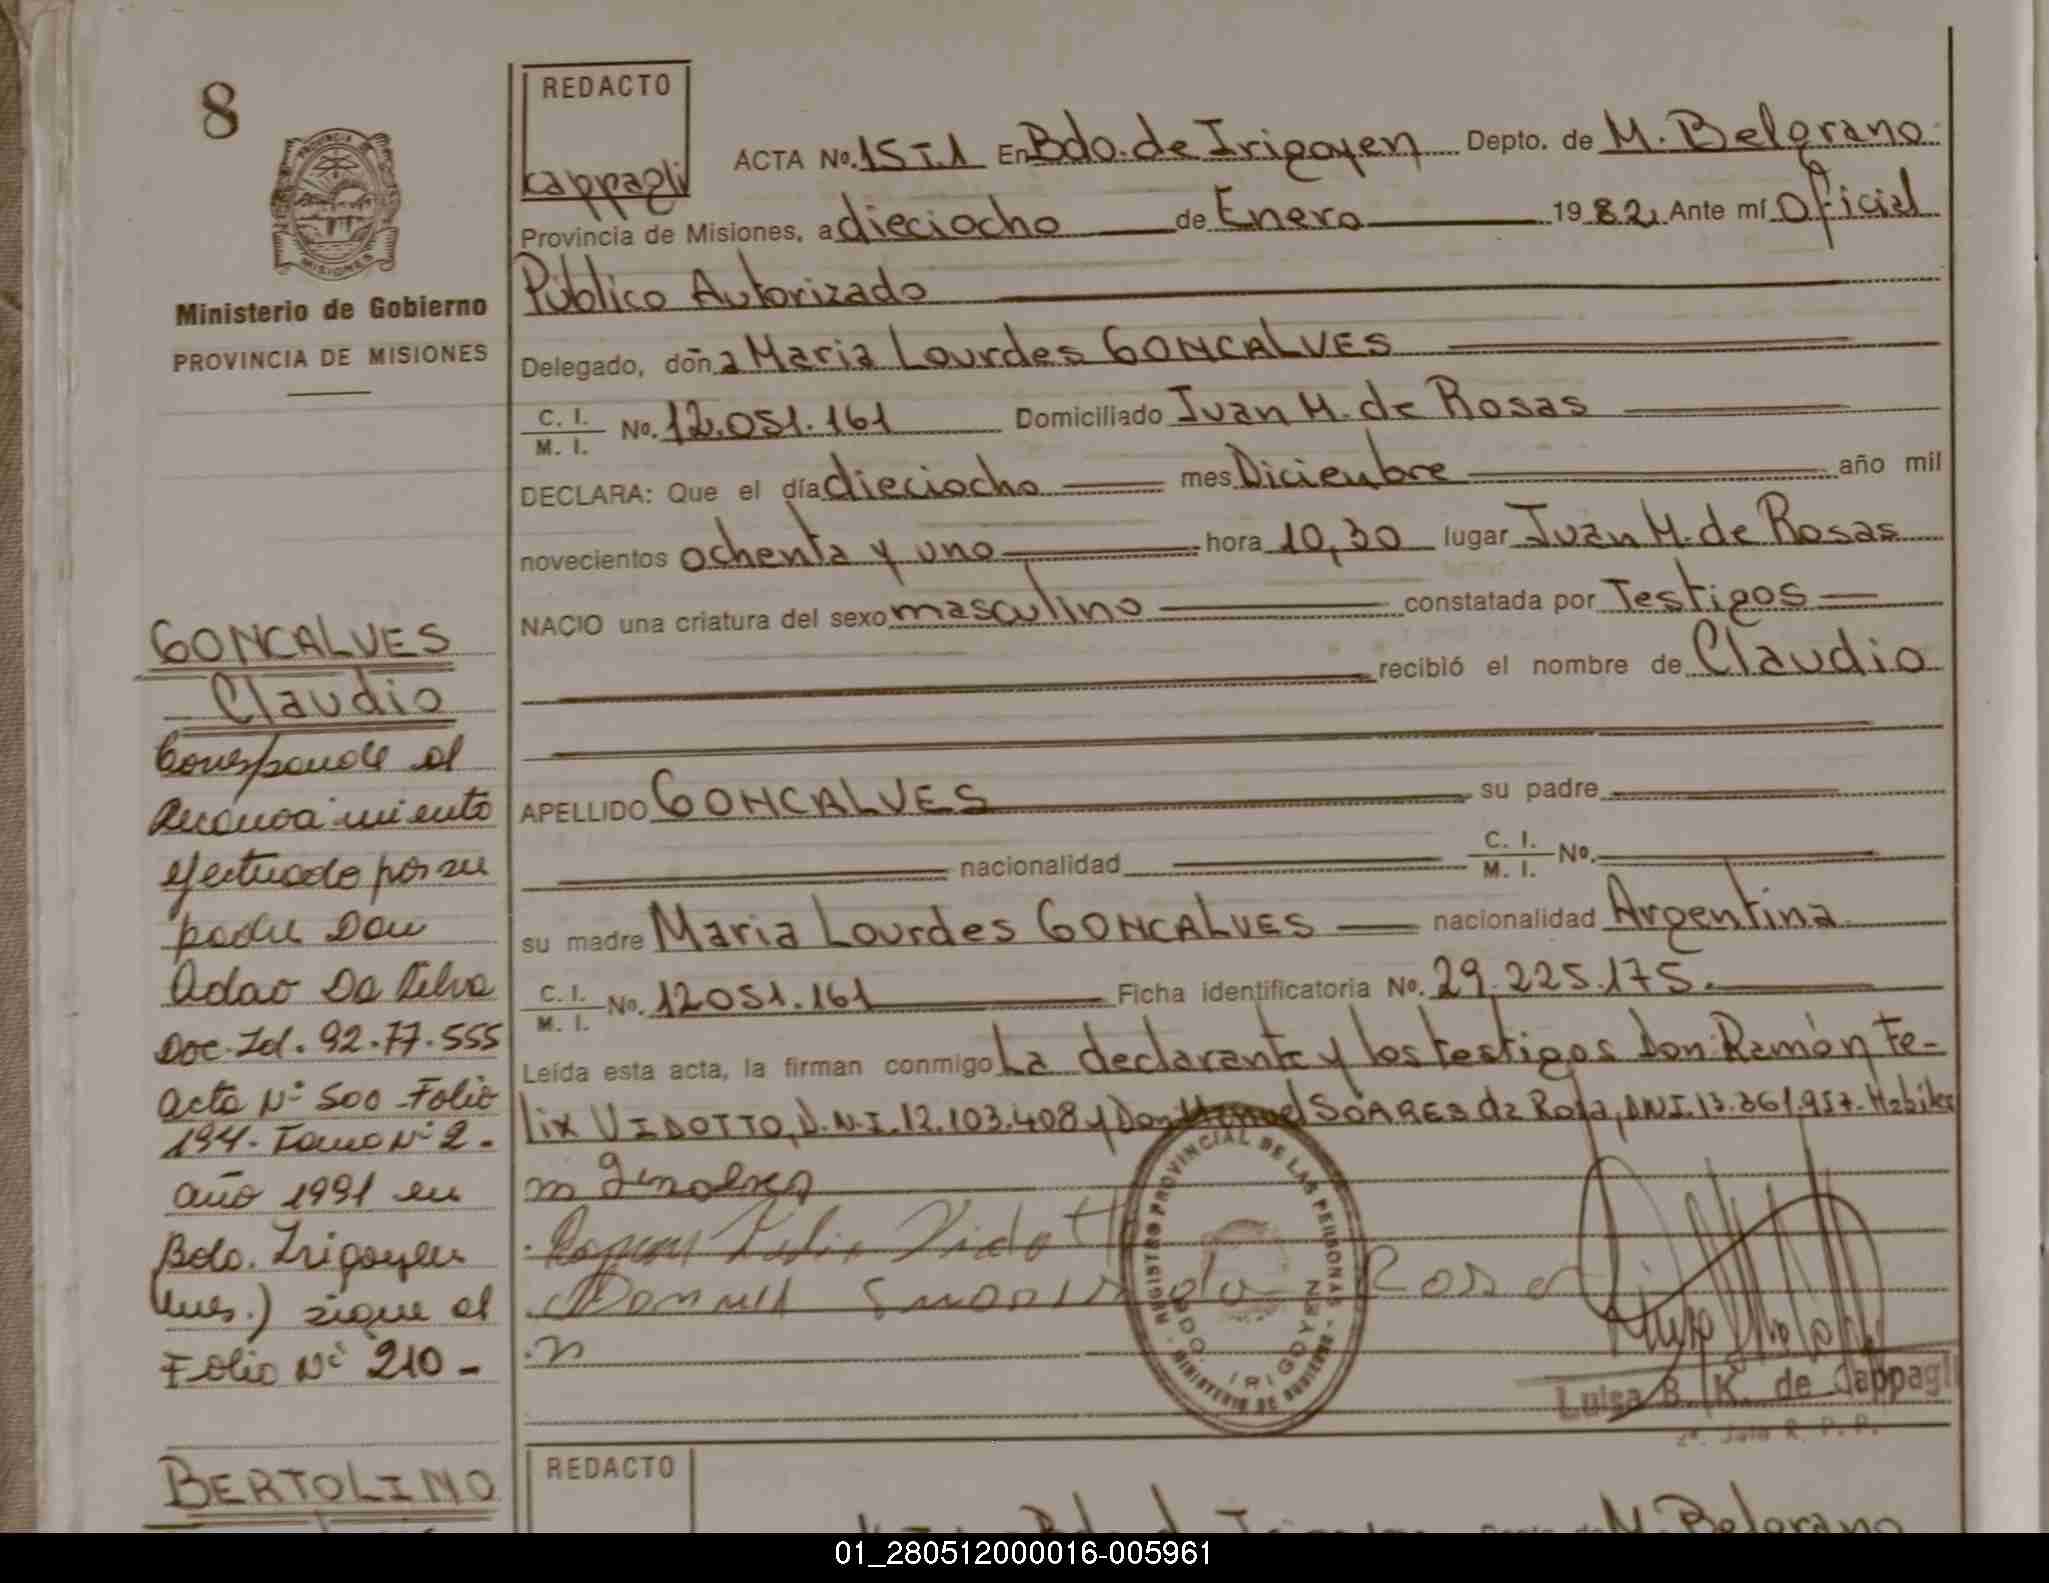 8
PROVINCIA DE
MISIONES
Ministerio de Gobierno
PROVINCIA DE MISIONES
GONCALVES
Claudio
Corresponde al
Reconocimiento
efectuado por su
padre Don
Adao Da Silva
Doc. Id. 92.77.555
acta Nº 500 Folio
194. Tomo Nº 2.
año 1991 en
Bdo. Irigoyen
(Mnes.) sigue al
Folio Nº 210 -
BERTOLINO
REDACTO
Cappagli
ACTA No. 15 T.1 En Bdo. de Irigoyen Depto. de M. Belgrano
Provincia de Misiones, a dieciocho de Enero 1982 Ante mí Oficial
Público Autorizado
Delegado, doña Maria Lourdes GONCALVES
C. I.
M. I. No. 12.051.161 Domiciliado Juan M. de Rosas
DECLARA: Que el día dieciocho mes Diciembre año mil
novecientos ochenta y uno hora 10,30 lugar Juan M. de Rosas
NACIO una criatura del sexo masculino constatada por Testigos
recibió el nombre de Claudio
APELLIDO GONCALVES su padre
nacionalidad C. I.
M. I. No.
su madre Maria Lourdes GONCALVES nacionalidad Argentina
C. I.
M. I. No. 12051.161 Ficha identificatoria No. 29.225.175.
Leída esta acta, la firman conmigo La declarante y los testigos Don Ramón Fe-
lix VIDOTTO, D.N.I. 12.103.408 y Don Manuel SOARES da Rosa, DNI. 13.361.957.
REGISTRO PROVINCIAL DE LAS PERSONAS
MINISTERIO DE GOBIERNO
BDO. IRIGOYEN
Rosa
Luisa B. K. de Cappagli
REDACTO
Bdo. de Irigoyen M. Belgrano
01_280512000016-005961